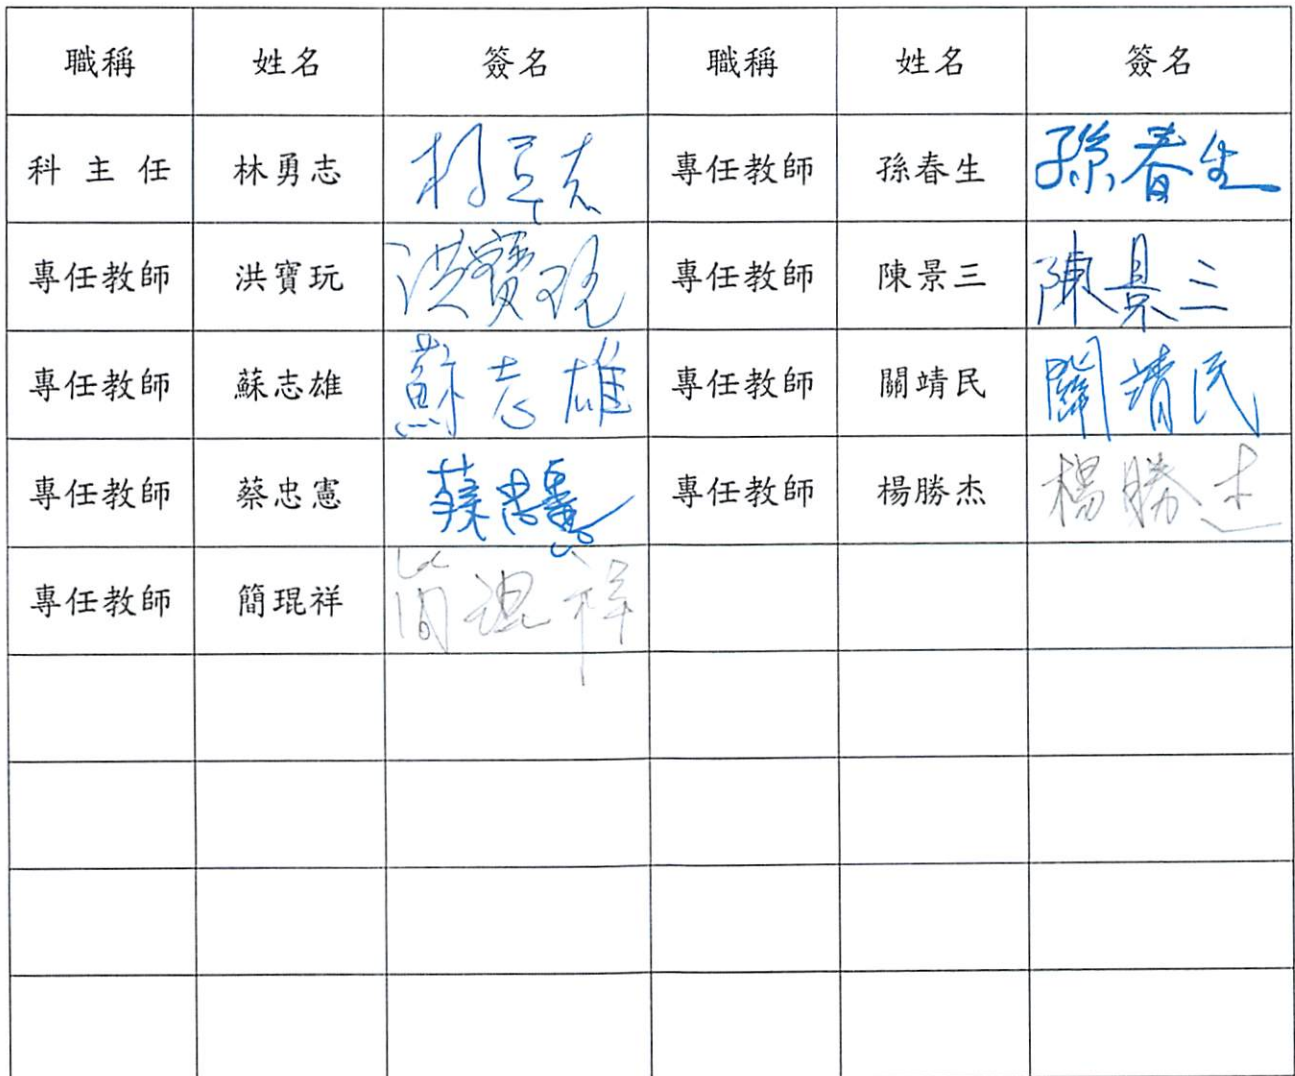 職稱 姓名 簽名 職稱 姓名 簽名
科主任 林勇志 林勇志 專任教師 孫春生 孫春生
專任教師 洪寶玩 洪寶玩 專任教師 陳景三 陳景三
專任教師 蘇志雄 蘇志雄 專任教師 關靖民 關靖民
專任教師 蔡忠憲 蔡忠憲 專任教師 楊勝杰 楊勝杰
專任教師 簡琨祥 簡琨祥